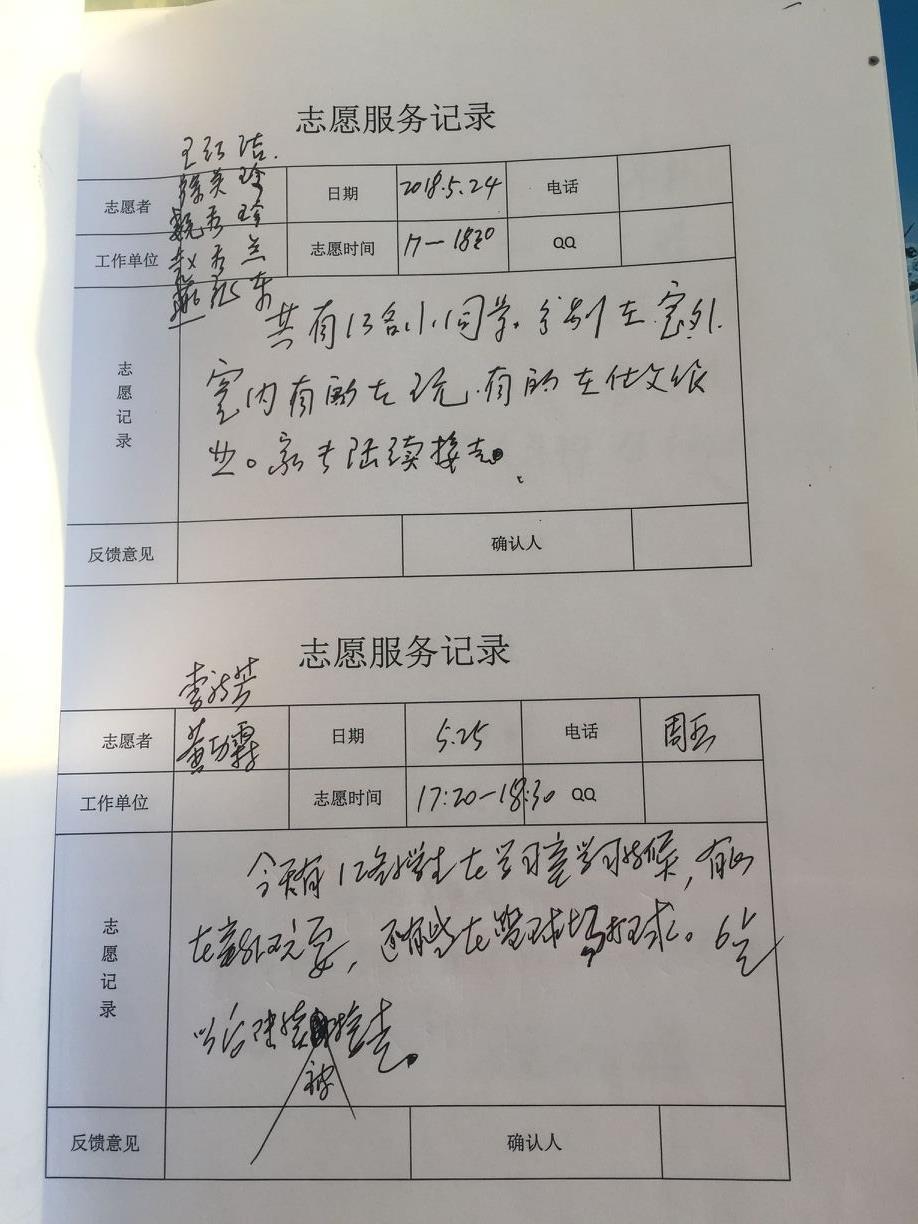 志愿服务记录
王红洁.
徐英玲
魏秀珍
赵秀兰
志愿者 日期 2018.5.24 电话
工作单位 志愿时间 17—1830 QQ
共有13名小同学。分别在室外.
室内有的在玩.有的在做作
业。家长陆续接走。
志愿记录
反馈意见 确认人
志愿服务记录
李秀芳
志愿者 黄功霖 日期 5.25 电话 周五
工作单位 志愿时间 17:20—18:30 QQ
今天有12名学生在学习室学习等候,有的
在室外玩耍,还有些在篮球场打球。6点
以后陆续被接走。
志愿记录
反馈意见 确认人